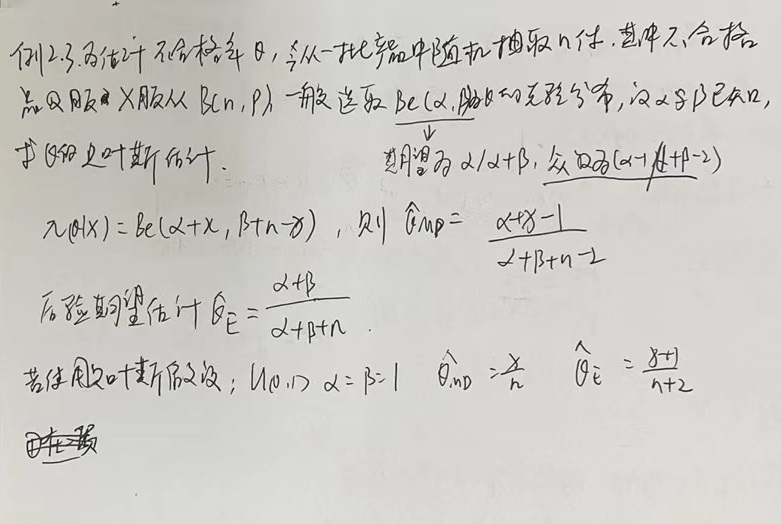 例2.3.为估计不合格率θ,今从一批产品中随机抽取n件.其中不合格
品 X服从B(n,P) 一般选取Be(α,β)为θ的先验分布,设α与β已知,
求θ的贝叶斯估计.
期望为α/α+β,众数为(α-1)/(α+β-2)
π(θ|X)=Be(α+x,β+n-x),则 θ̂MD= (α+x-1)/(α+β+n-2)
后验期望估计θ̂E= (α+β)/(α+β+n).
若使用贝叶斯假设;U(0,1) α=β=1 θ̂MD=x/n θ̂E=(x+1)/(n+2)